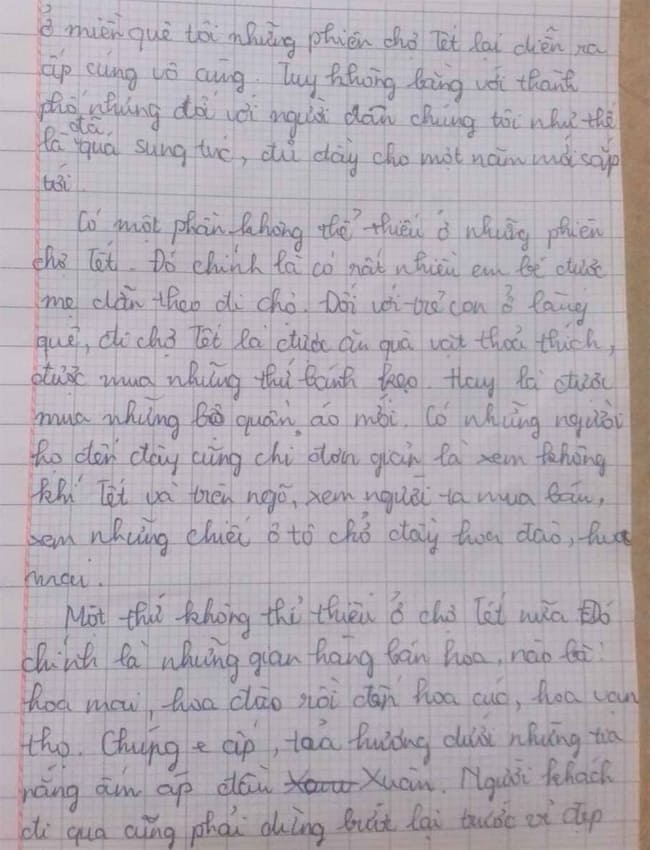 ở miền quê tôi những phiên chợ Tết lại diễn ra
ấp cúng vô cùng. Tuy không bằng với thành
phố nhưng đối với người dân chúng tôi như thế
là đã quá sung túc, đủ đầy cho một năm mới sắp
tới.
Có một phần không thể thiếu ở những phiên
chợ Tết. Đó chính là có rất nhiều em bé được
mẹ dẫn theo đi chợ. Đối với trẻ con ở làng
quê, đi chợ Tết là được ăn quà vặt thoả thích,
được mua những thứ bánh kẹo. Hay là được
mua những bộ quần áo mới. Có những người
họ đến đây cũng chỉ đơn giản là xem không
khí Tết và trên ngõ, xem người ta mua bán,
xem những chiếc ô tô chở đầy hoa đào, hoa
mai.
Một thứ không thể thiếu ở chợ Tết nữa Đó
chính là những gian hàng bán hoa, nào là:
hoa mai, hoa đào rồi đến hoa cúc, hoa vạn
thọ. Chúng e ấp, toả hương dưới những tia
nắng ấm áp đầu Xuân. Người khách
đi qua cũng phải dừng bước lại trước vẻ đẹp